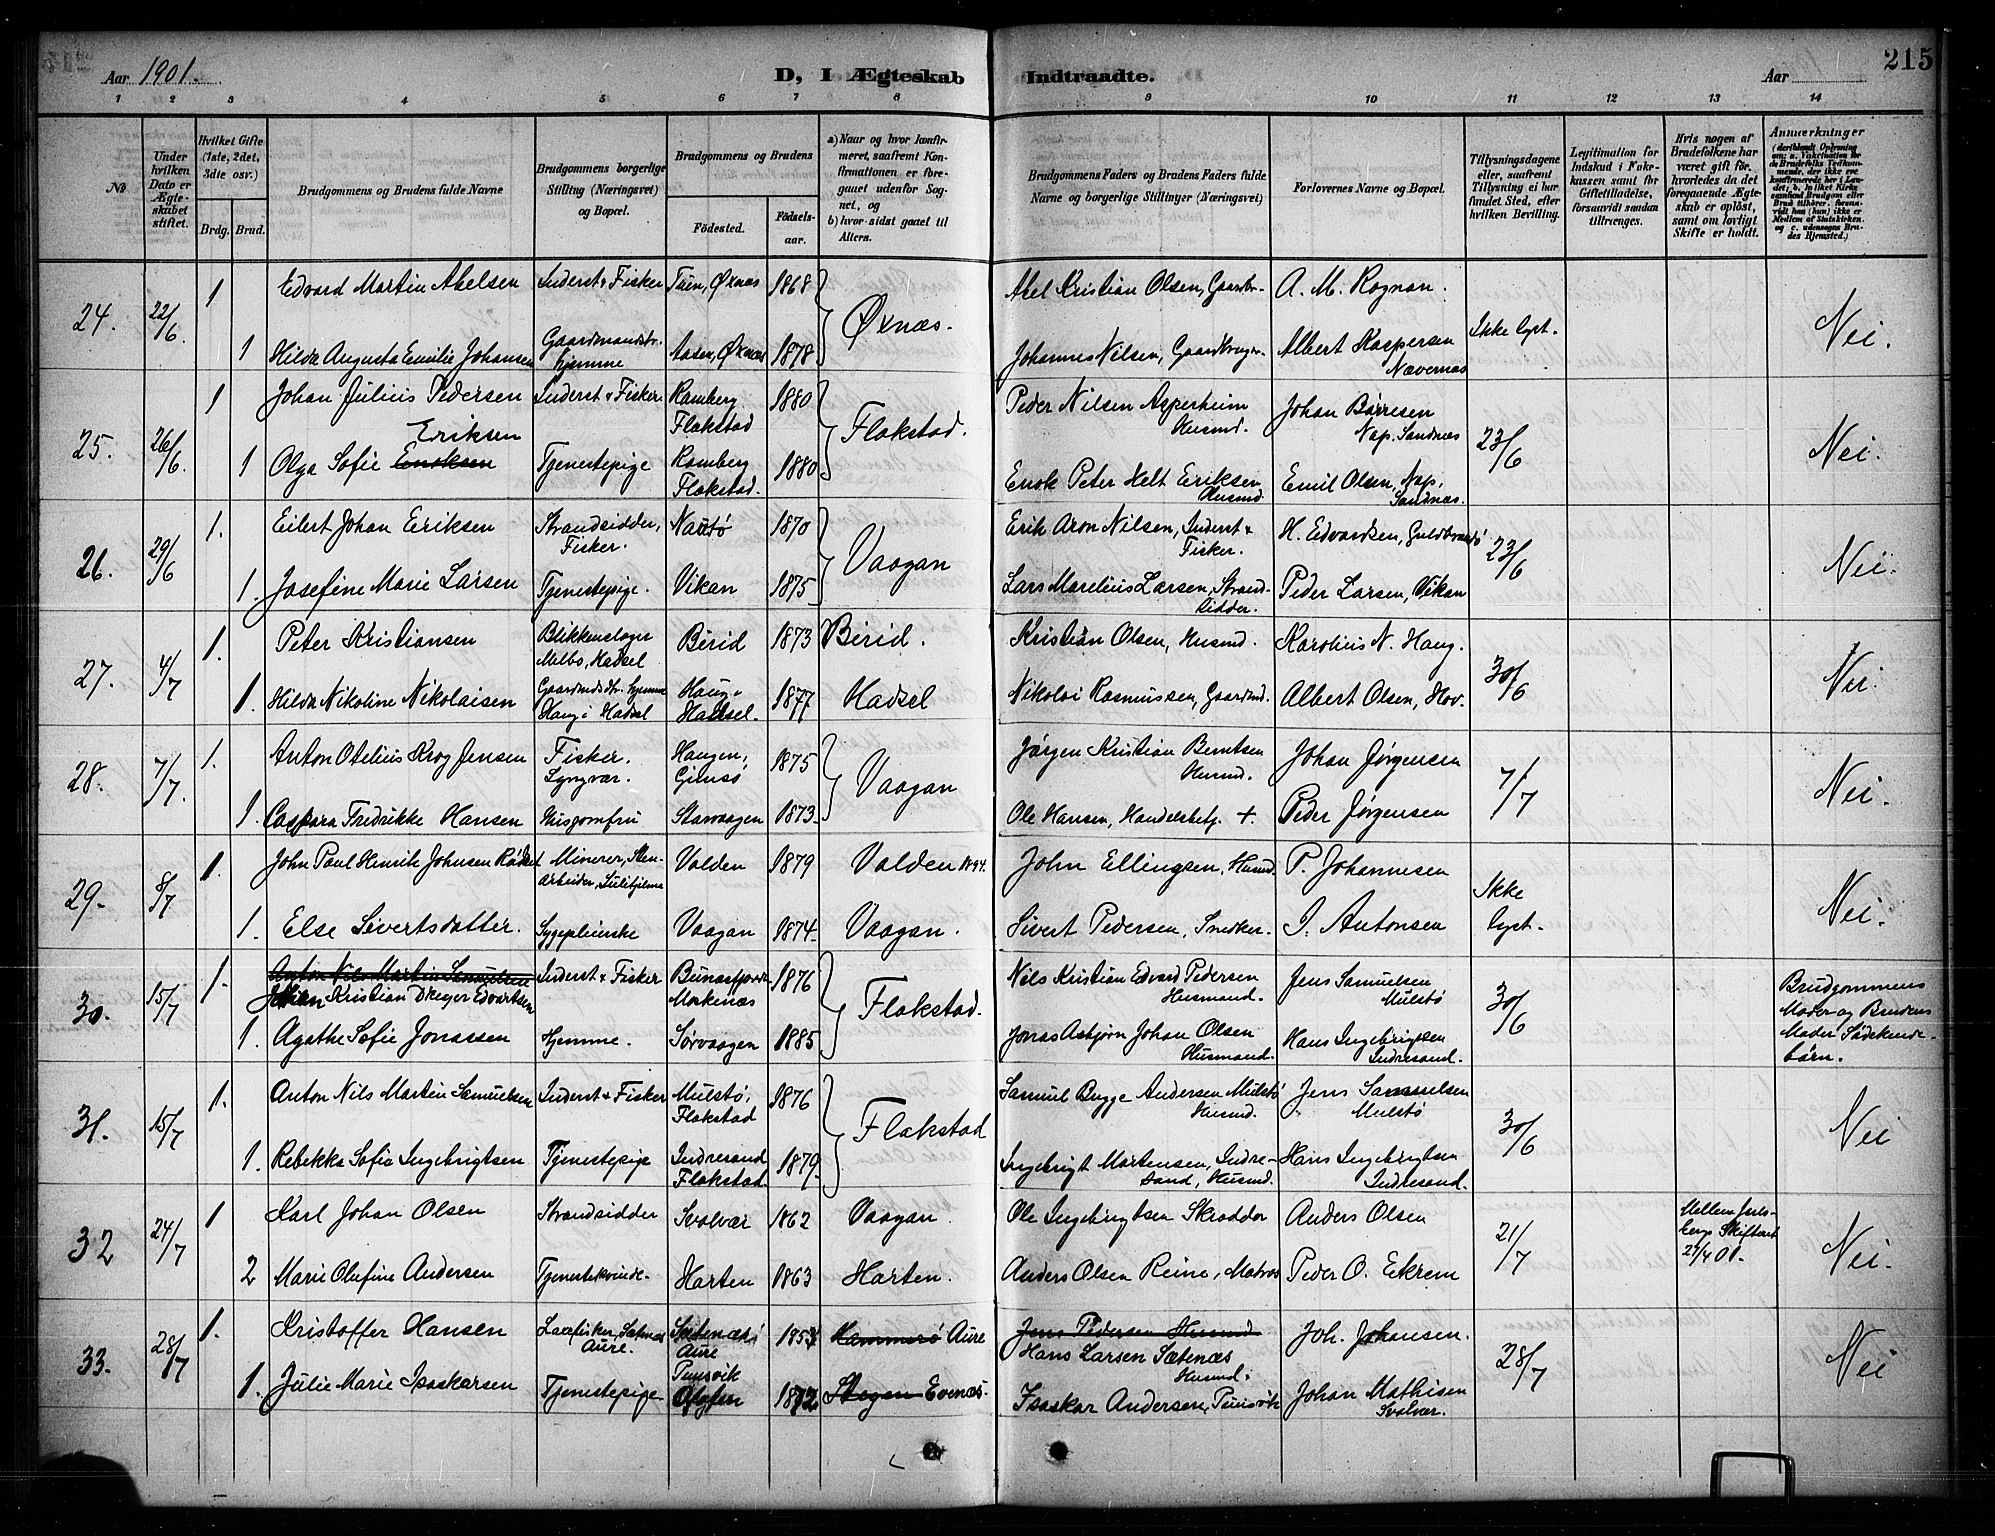 Aar 1901.
D, I Ægteskab Indtraadte.
Aar
215
1 2 3 4 5 6 7 8 9 10 11 12 13 14
No
Under hvilken Dato er Ægteskabet stiftet.
Hvilket Gifte (1ste, 2det, 3die osv.)
Brdg. Brud.
Brudgommens og Brudens fulde Navne
Brudgommens borgerlige Stilling (Næringsvei) og Bopæl.
Brudgommens og Brudens
Födested.
Födselsaar.
a) Naar og hvor konfirmeret, saafremt Konfirmationen er foregaaet udenfor Sognet, og
b) hvor sidst gaaet til Alters.
Brudgommens Faders og Brudens Faders fulde Navne og borgerlige Stillinger (Næringsvei)
Forlovernes Navne og Bopæl.
Tillysningsdagene eller, saafremt Tillysning ei har fundet Sted, efter hvilken Bevilling.
Legitimation for Indskud i Enkekassen samt for Giftetilladelse, forsaavidt sandan tiltrænges.
Hvis nogen af Brudefolkene har været gift før, hvorledes da det foregaaende Ægteskab er oplöst, samt om lovligt Skifte er holdt.
Anmærkninger
24. 22/6 1 Edvard Martin Abelsen Inderst & Fisker Tuen, Øxnæs 1868 Øxnæs. Abel Kristian Olsen, Gaardbr. A. M. Rognan. Ikke lyst. Nei.
1 Hilda Augusta Emilie Johansen Gaardmandsdtr. hjemme Aasen, Øxnæs 1878 Johannes Nilsen, Gaardbruger. Albert Kaspersen Nævernæs
25. 26/6 1 Johan Julius Pedersen Inderst & Fisker Ramberg Flakstad 1880 Flakstad. Peder Nilsen Asperheim Husmd. Johan Börresen Nap. Sandnæs 23/6 Nei.
Eriksen
1 Olga Sofie Enoksen Tjenestepige Ramberg Flakstad. 1880 Enok Peter Helt Eriksen Husmd Emil Olsen, Nap, Sandnæs.
26. 29/6 1. Eilert Johan Eriksen Strandsidder, Fisker. Nautö 1870 Vaagan Erik Aron Nilsen, Inderst & Fisker. H. Edvardsen, Guldbrandsö 23/6 Nei.
1. Josefine Marie Larsen Tjenestepige. Vikan 1875 Lars Marelius Larsen, Strandsidder. Peder Larsen, Vikan
27. 4/7 1. Peter Kristiansen Blikkenslager Melbo, Hadsel Birid 1873 Birid. Kristian Olsen, Husmd. Karolius N. Haug. 30/6 Nei.
1. Hilda Nikoline Nikolaisen Gaardmdsdtr. hjemme Haug i Hadsel Haug i Hadsel. 1877 Hadsel Nikolai Rasmussen, Gaardmd. Albert Olsen, Hov.
28. 7/7. 1. Anton Otelius Krog Jensen Fisker. Lyngvær. Haugen, Gimsö 1875 Vaagan Jörgen Kristian Berntsen Husmd. Johan Jörgensen 7/7 Nei.
1. Caspara Fredrikke Hansen Husjomfru Storvaagen 1873 Ole Hansen, Handelsbetj. +. Peder Jörgensen
29. 8/7 1. John Paul Henrik Johnsen Minerer, Stenarbeider, Sulitjelma Valden 1879 Valden 1894. John Ellingsen, Husmd P. Johannesen Ikke lyst. Nei.
1. Else Sivertsdatter. Sygepleierske Vaagan 1874 Vaagan. Sivert Pedersen, Snedker. J. Antonsen
30. 15/7 1. Anton Nils Martin Samuelsen Inderst & Fisker Bunesfjord Morkenæs 1876 Flakstad. Nils Kristian Edvard Pedersen Husmand. Jens Samuelsen Mulstö 30/6 Brudgommens Moder og Brudens Moder Södskendebörn.
Johan Kristian Dreyer Edvartsen
1. Agathe Sofie Jonassen Hjemme. Sörvaagen 1885 Jonas Asbjörn Johan Olsen Husmand. Hans Ingebrigtsen Indresand.
31. 15/7 1. Anton Nils Martin Samuelsen Inderst & Fisker Mulstö, Flakstad 1876 Flakstad Samuel Bugge Andersen Mulstö Husmd. Jens Samuelsen Mulstö 30/6 Nei
1. Rebekka Sofia Ingebrigtsen Tjenestepige Indresand Flakstad 1879 Ingebrigt Mortensen, Indresand, Husmd. Hans Ingebrigtsen Indresand.
32 24/7 1 Karl Johan Olsen Strandsidder Svolvær 1862 Vaagan. Ole Ingebrigtsen Skrædder Anders Olsen 21/7 Skifteret 27/4 01. Nei.
2 Marie Olufine Andersen Tjenestekvinde. Harten 1863 Harten. Anders Olsen Reine, Matros Peder O. Ekrem
33. 28/7 1. Kristoffer Hansen Laxefisker, Sætenæs Aure. Sætenæs Aure 1857 Hammerö Aure Jens Pedersen Husmd Joh. Johansen. 28/7 Nei
Hans Larsen Sætenæs Husmd.
1. Julie Marie Isaskarsen Tjenestepige Punsvik Ofoten 1872 Stegen Evenæs. Isaskar Andersen, Punsvik Johan Mathisen Svolvær.